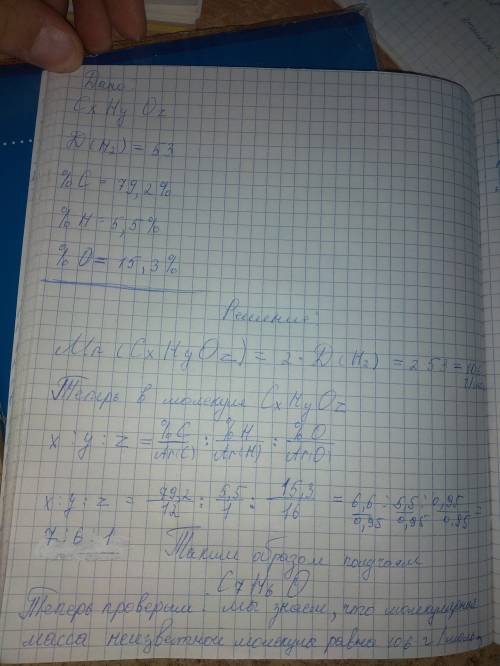 Дано
CxHyOz
D(H₂) = 53
%C = 79,2%
%H = 5,5%
%O = 15,3%
Решение:
Mr (CxHyOz) = 2 · D(H₂) = 2 · 53 =
Теперь в молекуле CxHyOz
x : y : z = %C/Ar(C) : %H/Ar(H) : %O/Ar(O)
x : y : z = 79,2/12 : 5,5/1 : 15,3/16 = 6,6/0,95 : 5,5/0,95 : 0,95/0,95 =
7 : 6 : 1 Таким образом получаем
C₇H₆O
Теперь проверим: Мы знаем, что молекулярная
масса неизвестной молекулы равна 106 г/моль